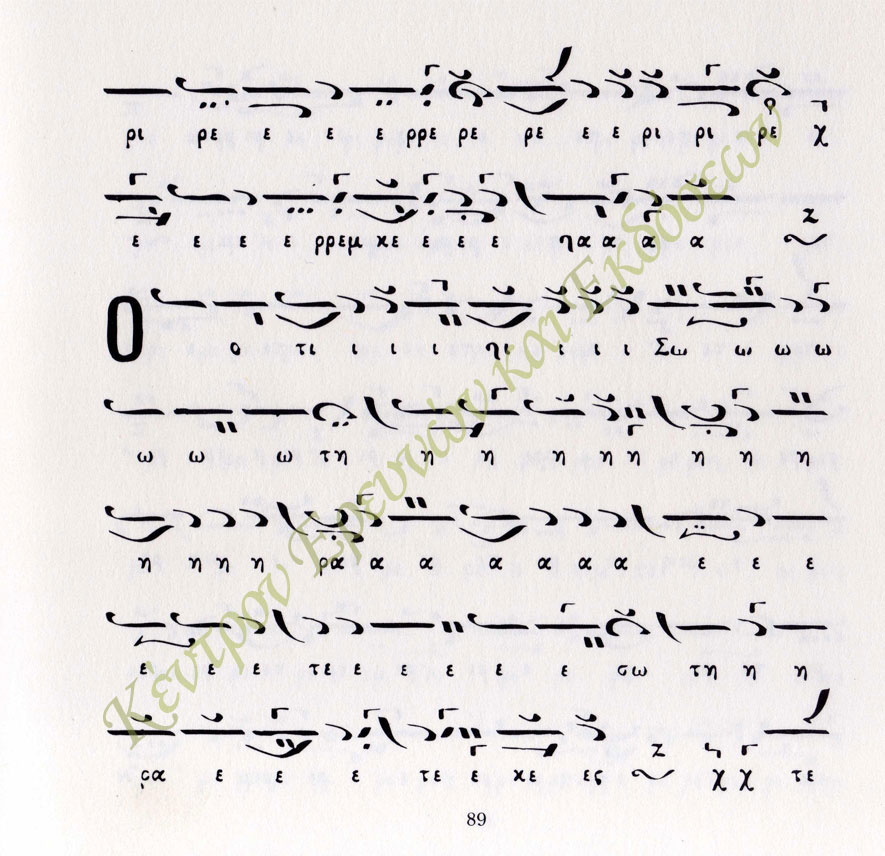 ρι ρε ε ε ε ρρε ρε ρε ε ε ρι ρι ρε χ
ε ε ε ε ρρεμ κε ε ε ε ηα α α α
Ο ο τι ι ι ι ηι ι ι ι Σω ω ω ω
ω ω ω τη η η η η η η η η
η η η η ρα α α α α α α ε ε ε
ε ε ε τε ε ε ε ε ε σω τη η η
ϛα ε ε ε τε ε κε ες χ χ τε
89
Κέντρον Ερευνών και Εκδόσεων